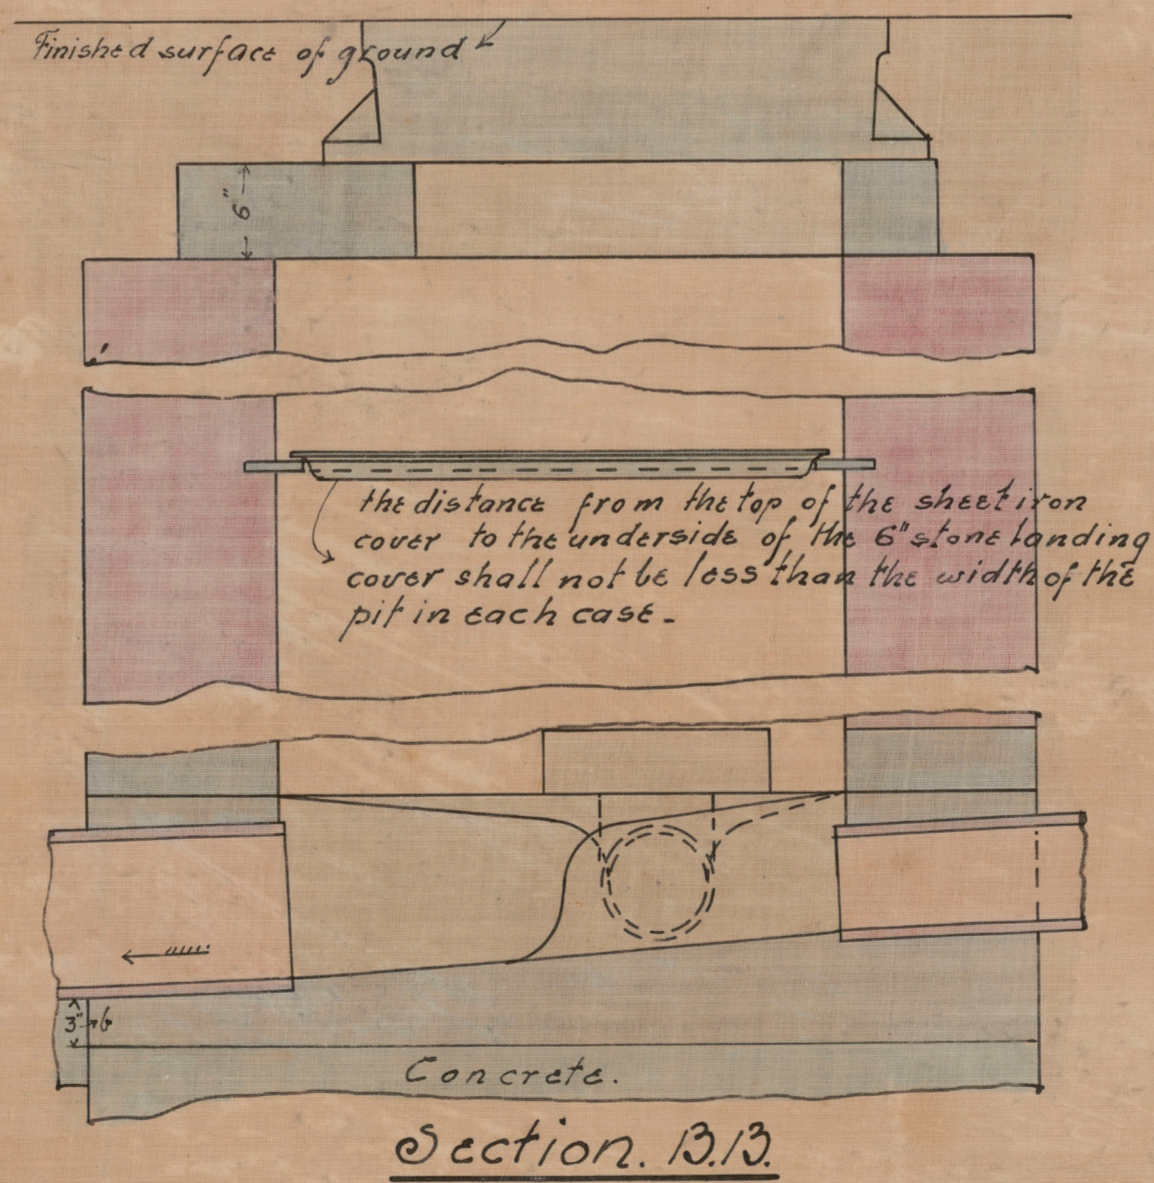 Finished surface of ground
6"
the distance from the top of the sheet iron
cover to the underside of the 6" stone landing
cover shall not be less than the width of the
pit in each case.
3"
Concrete.
Section. B.B.